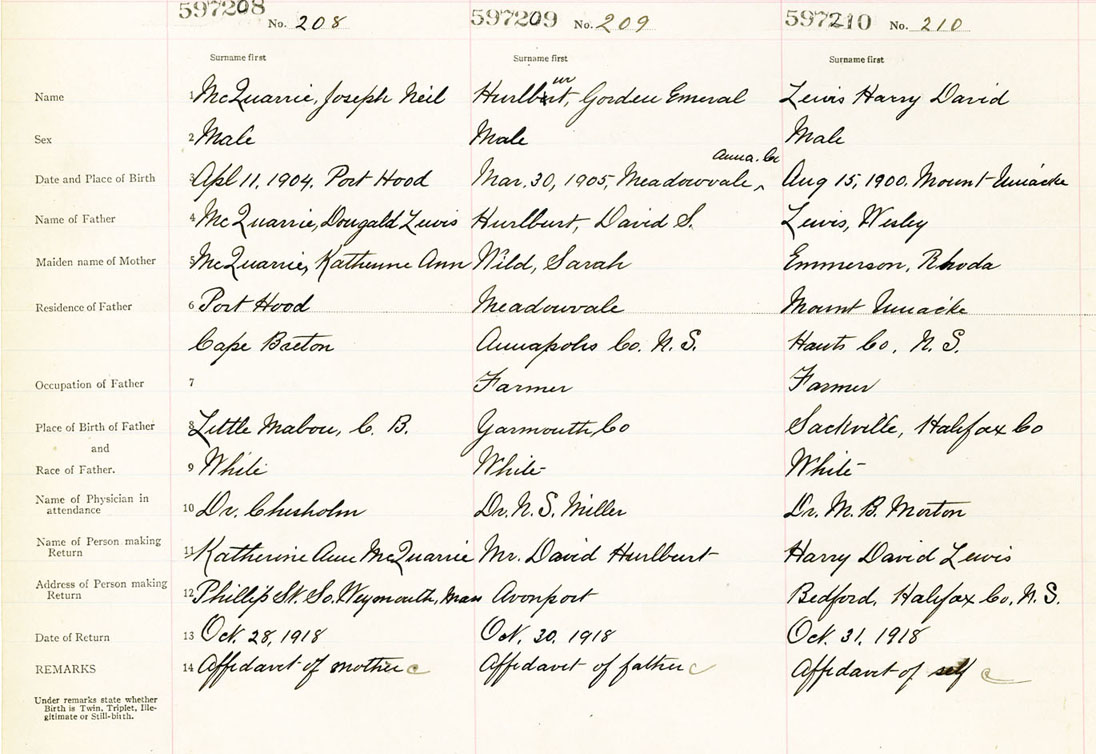 597208 No. 208 597209 No. 209 597210 No. 210
Surname first Surname first Surname first
Name 1 McQuarrie, Joseph Neil Hurlburt, Gorden Emeral Lewis Harry David
Sex 2 Male Male Male
Anna. Co
Date and Place of Birth 3 Apl 11, 1904. Port Hood Mar. 30, 1905, Meadowvale, Aug 15, 1900. Mount Uniacke
Name of Father 4 McQuarrie, Dougald Lewis Hurlburt, David S. Lewis, Wesley
Maiden name of Mother 5 McQuarrie, Katherine Ann Wild, Sarah Emmerson, Rhoda
Residence of Father 6 Port Hood Meadowvale Mount Uniacke
Cape Breton Annapolis Co. N. S. Hants Co, N. S.
Occupation of Father 7 Farmer Farmer
Place of Birth of Father 8 Little Mabou, C. B. Yarmouth, Co Sackville, Halifax Co
and
Race of Father. 9 White White White
Name of Physician in
attendance 10 Dr. Chisholm Dr. N. S. Miller Dr. M. B. Morton
Name of Person making
Return 11 Katherine Ann McQuarrie Mr. David Hurlburt Harry David Lewis
Address of Person making
Return 12 Phillip St. So. Weymouth, Mass Avonport Bedford, Halifax Co, N. S.
Date of Return 13 Oct. 28, 1918 Oct. 30, 1918 Oct. 31, 1918
REMARKS 14 Affidavit of mother c Affidavit of father c Affidavit of self c
Under remarks state whether
Birth is Twin, Triplet, Ille-
gitimate or Still-birth.